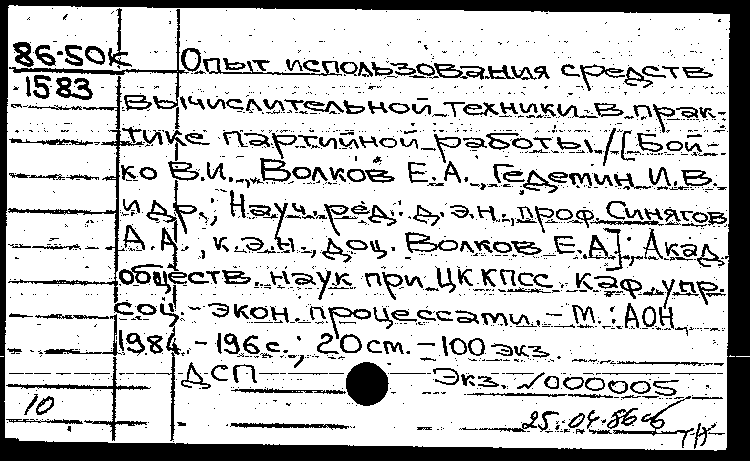 86-50К Опыт использования средств
1583
вычислительной техники в прак-
тике партийной работы /[Бой-
ко В.И., Волков Е.А., Гедетин И.В.
и др.; Науч. ред.: д.э.н., проф. Синягов
А.А., к.э.н., доц. Волков Е.А]; Акад.
обществ. наук при ЦК КПСС. каф. упр.
соц.-экон. процессати. - М.: АОН,
1984. - 196 с.; 20 ст. - 100 экз.
ДСП Экз. №000005
10
25.04.86